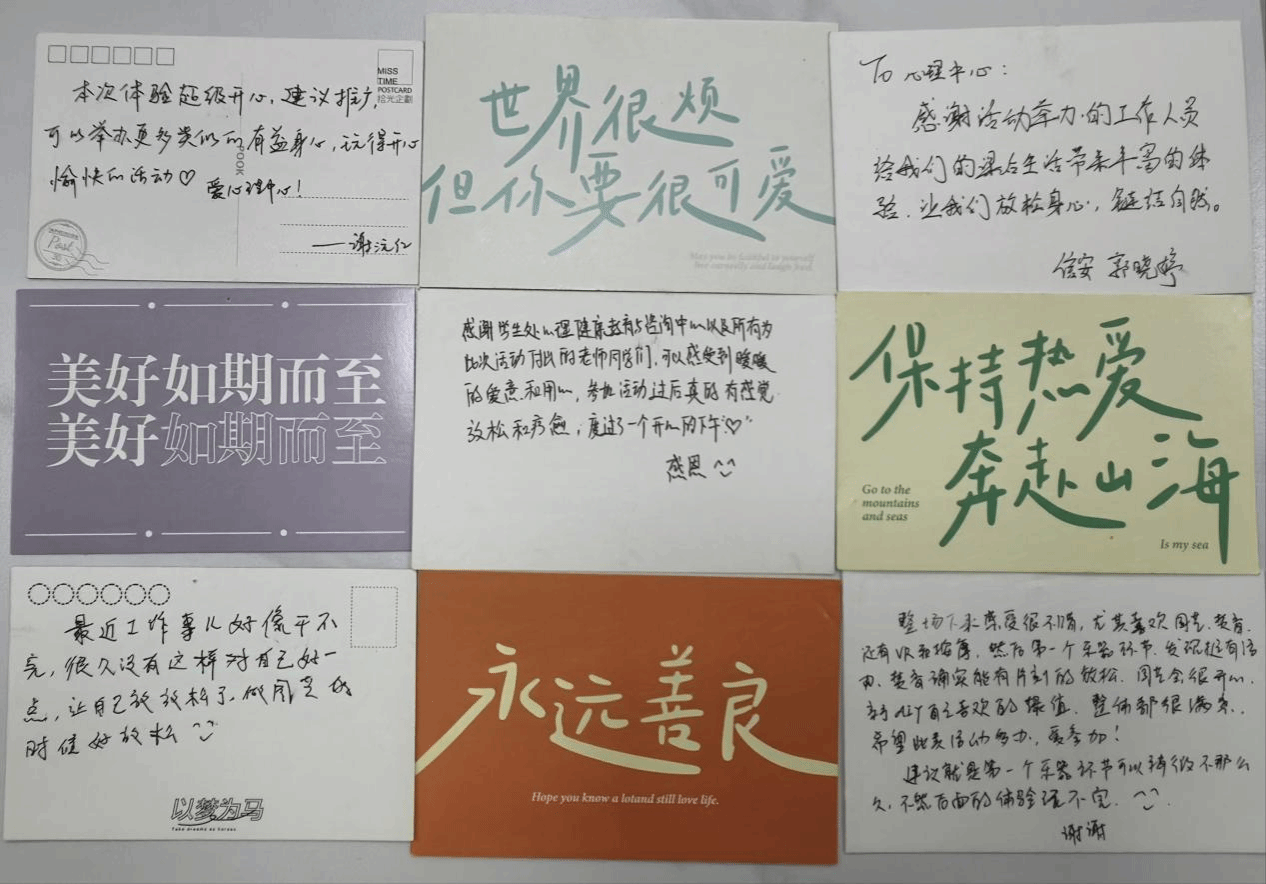 MISS
TIME
POSTCARD
拾光企劃
本次体验超级开心，建议推广，
可以举办更多类似的有益身心，玩得开心
愉快的活动♡ 爱心理中心！
POOK
Post
——谢沅仁
世界很烦
但你要很可爱
May you be faithful to yourself
live earnestly and laugh freel.
To 心理中心：
感谢活动举办的工作人员
给我们的课占生活带来丰富的体
验．让我们放松身心，链结自我。
信安 郭晓婷
美好如期而至
美好如期而至
感谢学生处心理健康教育与咨询中心以及所有为
此次活动付出的老师同学们，可以感受到暖暖
的爱意和用心，参加活动过后真的有感觉
放松和疗愈，度过了一个开心的下午"♡"
感恩 ^‿^
保持热爱
奔赴山海
Go to the
mountains
and seas
Is my sea
最近工作事儿好像干不
完，很久没有这样对自己好一
点，让自己放放松了，做
时候好放松
以梦为马
Take dreams as horses
永远善良
Hope you know a lotand still love life.
整场下来感受很不错，尤其喜欢
还有VR和按摩，然后第一个乐器环节，发现挺有活
力，确实能有片刻的放松．会很开心，
亲手diy自己喜欢的．整体都很满意．
希望此类活动多办，爱参加！
建议就是第一个乐器环节可以稍微不那么
久，不然后面的体验玩不完．^‿^．
谢谢